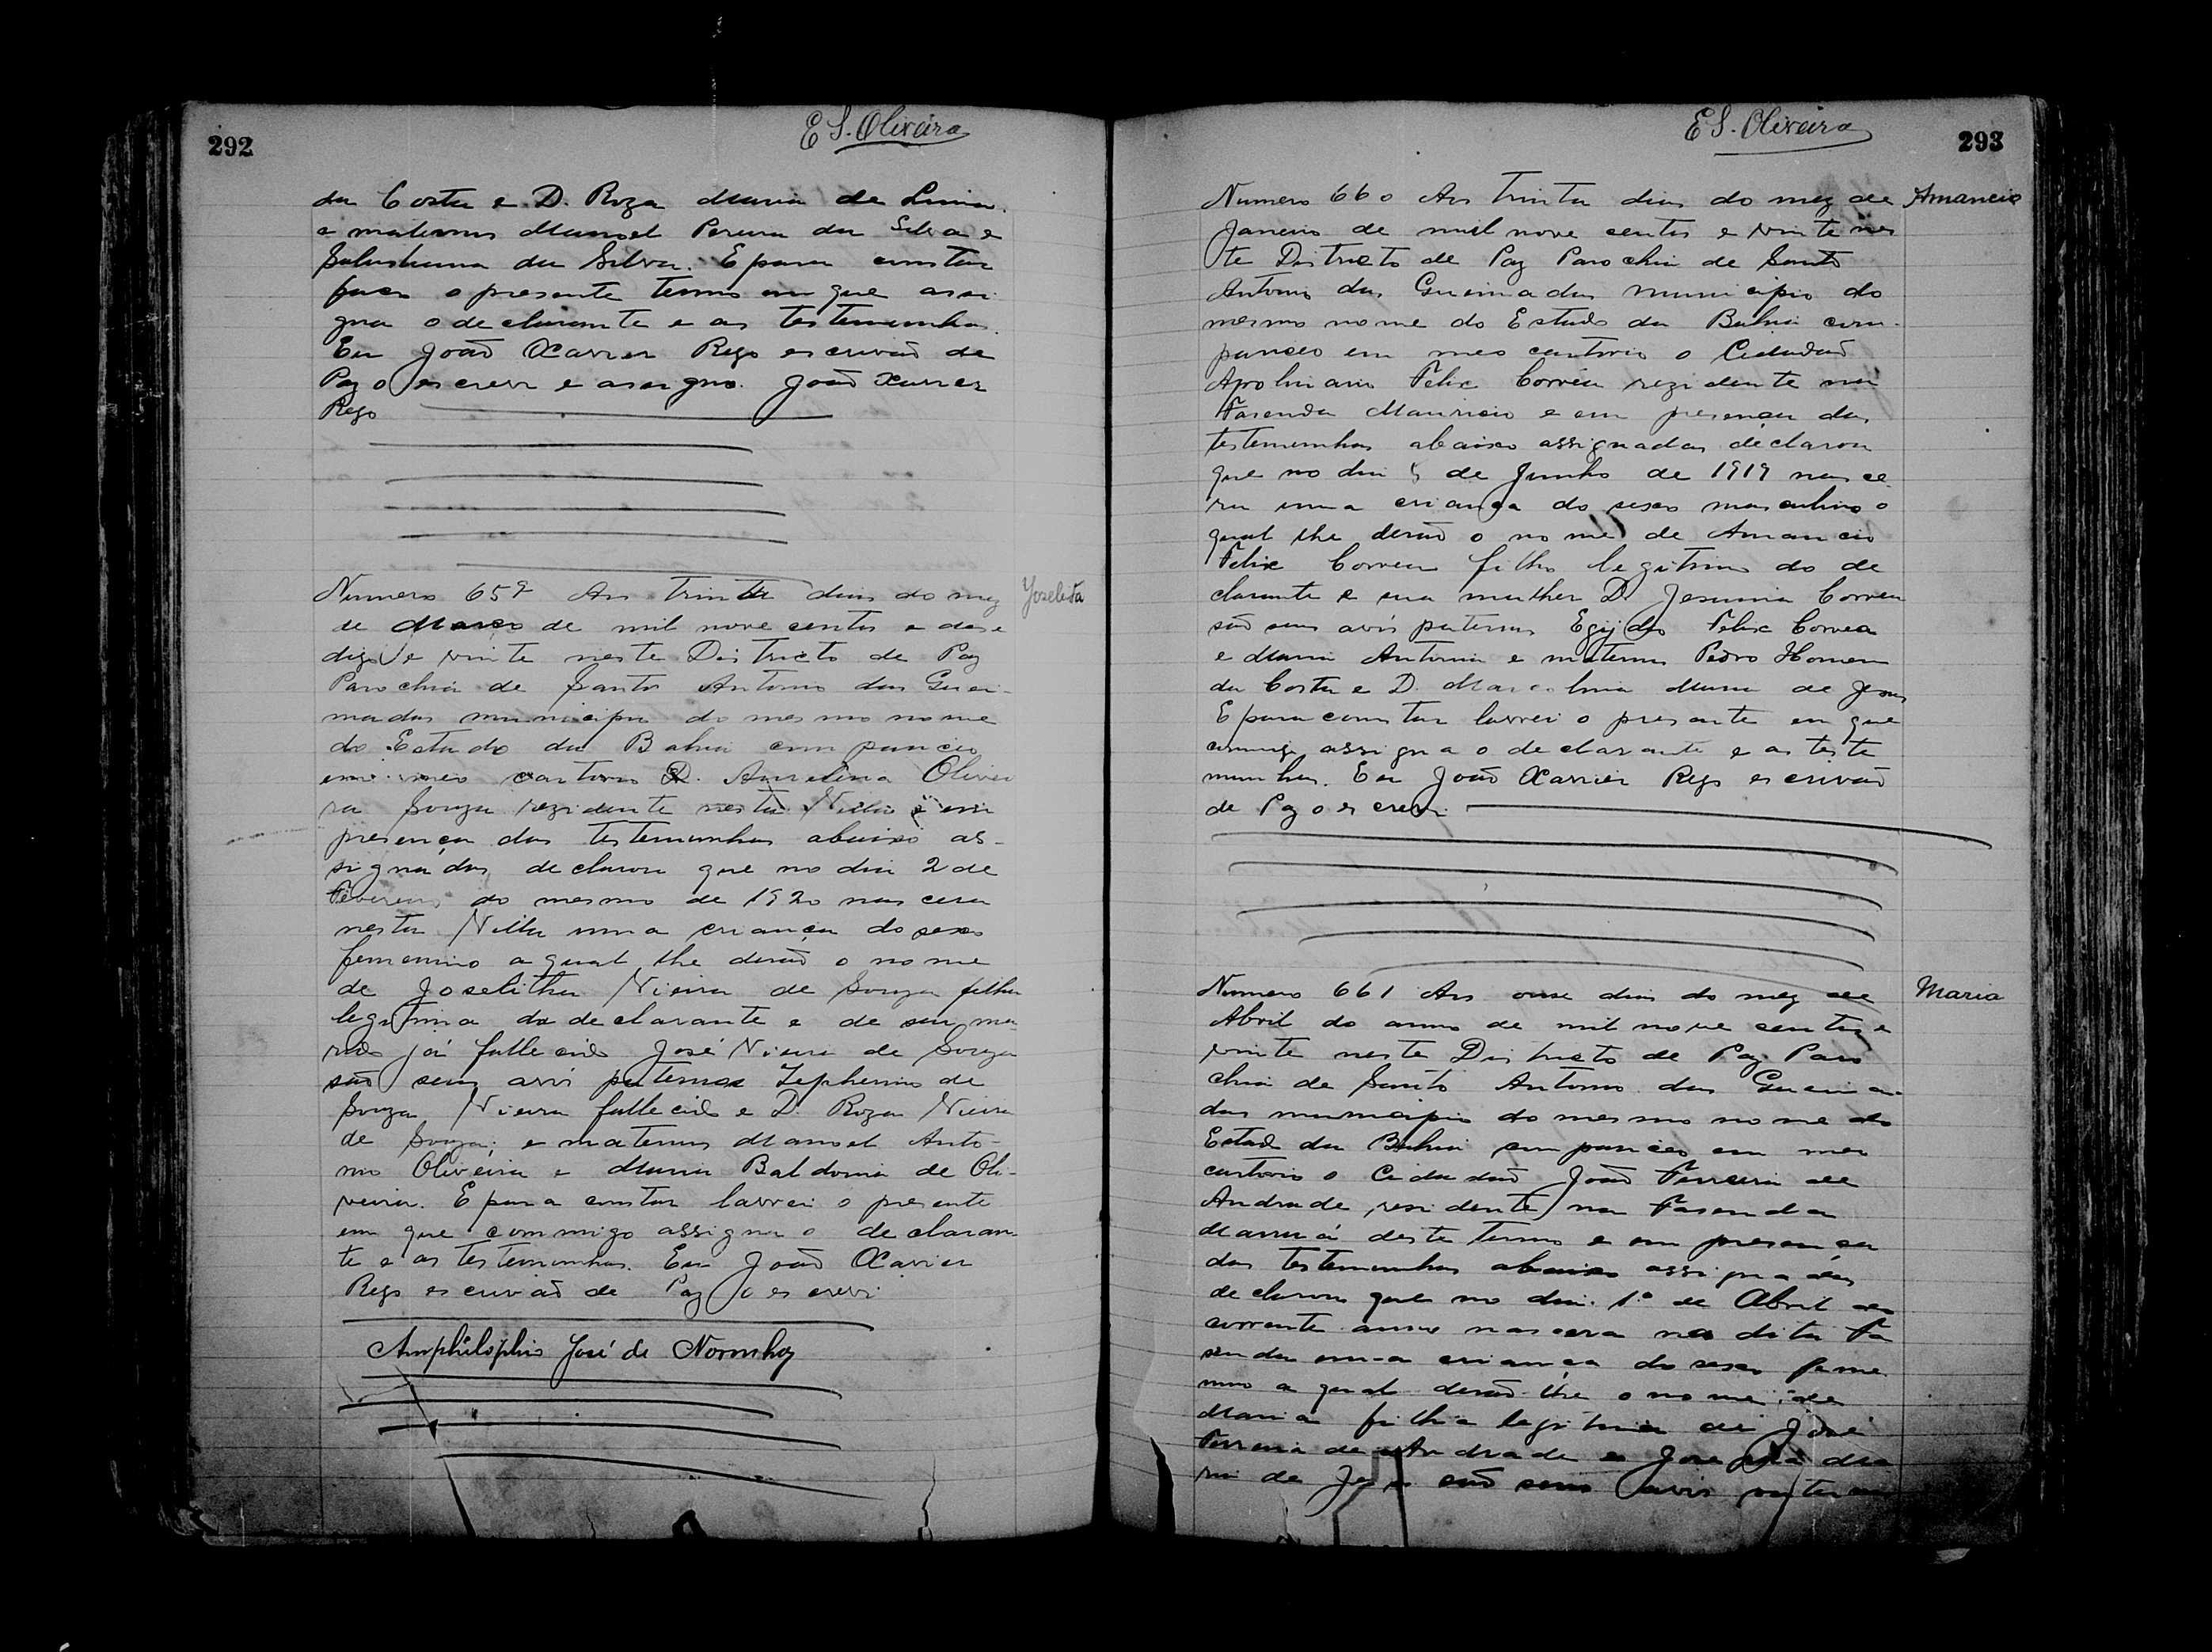 292
E S. Oliveira
da Costa e D. Roza Maria de Lima
e maternos Manoel Pereira da Silva e
da Silva. E para constar
faço o presente termo em que assi
gna o declarante e as testemunhas.
Eu João Xavier Rego escrivão de
Paz o escrevi e assigno. João Xavier
Rego
Numero 659 Aos trinta dias do mez
de Março de mil nove centos e dese
digo e vinte neste Districto de Paz
Parochia de Santo Antonio das Quei-
madas municipio do mesmo nome
do Estado da Bahia compareceo
em meo cartorio D. Amelina Olivei
ra Souza rezidente nesta Villa e em
presença das testemunhas abaixo as-
signadas, declarou que no dia 2 de
Fevereiro do mesmo de 1920 nascera
nesta Villa uma criança do sexo
femenino a qual lhe derão o nome
de Joselitha Vieira de Souza filha
legitima da declarante e de seu ma
rido já fallecido José Vieira de Souza
são seus avós paternos Zepherino de
Souza Vieira fallecido e D. Roza Vieira
de Souza; e maternos Manoel Anto-
nio Oliveira e Maria Baldoina de Oli-
veira. E para constar lavrei o presente
em que commigo assigna o declaran
te e as testemunhas. Eu João Xavier
Rego escrivão de Paz o escrevi
Amphilophio José de Noronha
Joselita
E S. Oliveira
293
Numero 660 Aos trinta dias do mez de
Janeiro de mil nove centos e vinte nes
te Districto de Paz Parochia de Santo
Antonio das Queimadas municipio do
mesmo nome do Estado da Bahia com-
pareceo em meo cartorio o Cidadão
Apolinario Felix Corrêa rezidente na
Fasenda Mauricio e em presença das
testemunhas abaixo assignadas declarou
que no dia 5 de Junho de 1919 nasce
ra uma criança do sexo masculino o
qual lhe derão o nome de Amancio
Felix Correa filho legitimo do de
clarante e sua mulher D. Jesuina Correa
são seus avós paternos Egydio Felix Correa
e Maria Antonia e maternos Pedro Homem
da Costa e D. Marcolina Maria de Jesus
E para constar lavrei o presente em que
commigo assigna o declarante e as teste
munhas. Eu João Xavier Rego escrivão
de Paz o escrevi.
Amancio
Numero 661 Aos onse dias do mez de
Abril do anno de mil nove centos e
vinte neste Districto de Paz Paro
chia de Santo Antonio das Queima
das municipio do mesmo nome do
Estado da Bahia compareceo em meu
cartorio o Cidadão João Ferreira de
Andrade residente na Fasenda
deste Termo e em presença
das testemunhas abaixo assignadas
declarou que no dia 1º de Abril do
corrente anno nascera na dita Fa
senda uma criança do sexo feme
nino a qual derão lhe o nome de
Maria filha legitima de José
Ferreira de Andrade e Josepha Ma
ria de Jesus são seus avós paternos
Maria